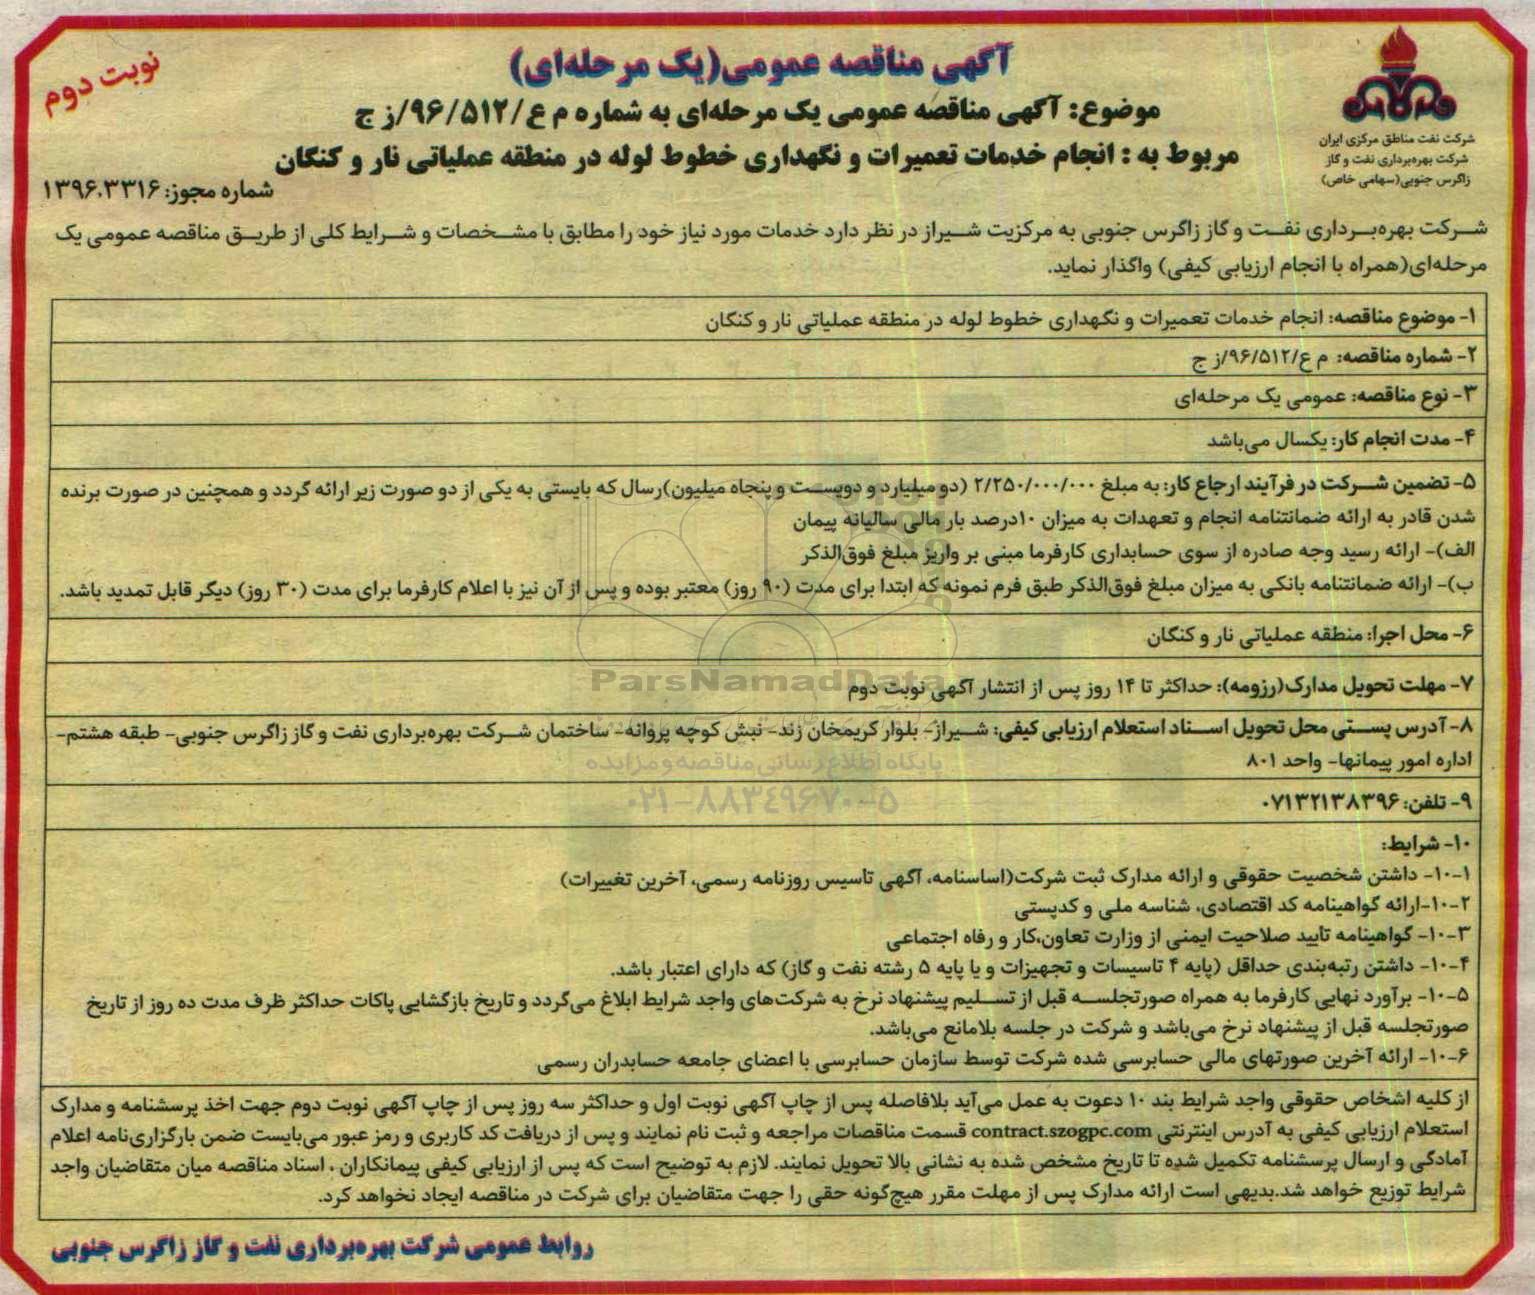 آگهی مناقصه عمومی(یک مرحله‌ای)
نوبت دوم
موضوع: آگهی مناقصه عمومی یک مرحله‌ای به شماره م ع/۹۶/۵۱۲/ز ج
مربوط به : انجام خدمات تعمیرات و نگهداری خطوط لوله در منطقه عملیاتی نار و کنگان
شرکت نفت مناطق مرکزی ایران
شرکت بهره‌برداری نفت و گاز
زاگرس جنوبی(سهامی خاص)
شماره مجوز: ۱۳۹۶.۳۳۱۶
شرکت بهره‌برداری نفت و گاز زاگرس جنوبی به مرکزیت شیراز در نظر دارد خدمات مورد نیاز خود را مطابق با مشخصات و شرایط کلی از طریق مناقصه عمومی یک
مرحله‌ای(همراه با انجام ارزیابی کیفی) واگذار نماید.
۱- موضوع مناقصه: انجام خدمات تعمیرات و نگهداری خطوط لوله در منطقه عملیاتی نار و کنگان
۲- شماره مناقصه: م ع/۹۶/۵۱۲/ز ج
۳- نوع مناقصه: عمومی یک مرحله‌ای
۴- مدت انجام کار: یکسال می‌باشد
۵- تضمین شرکت در فرآیند ارجاع کار: به مبلغ ۲/۲۵۰/۰۰۰/۰۰۰ (دو میلیارد و دویست و پنجاه میلیون)رسال که بایستی به یکی از دو صورت زیر ارائه گردد و همچنین در صورت برنده
شدن قادر به ارائه ضمانتنامه انجام و تعهدات به میزان ۱۰درصد بار مالی سالیانه پیمان
الف)- ارائه رسید وجه صادره از سوی حسابداری کارفرما مبنی بر واریز مبلغ فوق‌الذکر
ب)- ارائه ضمانتنامه بانکی به میزان مبلغ فوق‌الذکر طبق فرم نمونه که ابتدا برای مدت (۹۰ روز) معتبر بوده و پس از آن نیز با اعلام کارفرما برای مدت (۳۰ روز) دیگر قابل تمدید باشد.
۶- محل اجرا: منطقه عملیاتی نار و کنگان
ParsNamadData
۷- مهلت تحویل مدارک(رزومه): حداکثر تا ۱۴ روز پس از انتشار آگهی نوبت دوم
۸- آدرس پستی محل تحویل اسناد استعلام ارزیابی کیفی: شیراز- بلوار کریمخان زند- نبش کوچه پروانه- ساختمان شرکت بهره‌برداری نفت و گاز زاگرس جنوبی- طبقه هشتم-
اداره امور پیمانها- واحد ۸۰۱
پایگاه اطلاع رسانی مناقصه و مزایده
۰۲۱-۸۸۳۴۹۶۷۰-۵
۹- تلفن: ۰۷۱۳۲۱۳۸۳۹۶
۱۰- شرایط:
۱-۱۰- داشتن شخصیت حقوقی و ارائه مدارک ثبت شرکت(اساسنامه، آگهی تاسیس روزنامه رسمی، آخرین تغییرات)
۲-۱۰-ارائه گواهینامه کد اقتصادی، شناسه ملی و کدپستی
۳-۱۰- گواهینامه تایید صلاحیت ایمنی از وزارت تعاون،کار و رفاه اجتماعی
۴-۱۰- داشتن رتبه‌بندی حداقل (پایه ۴ تاسیسات و تجهیزات و یا پایه ۵ رشته نفت و گاز) که دارای اعتبار باشد.
۵-۱۰- برآورد نهایی کارفرما به همراه صورتجلسه قبل از تسلیم پیشنهاد نرخ به شرکت‌های واجد شرایط ابلاغ می‌گردد و تاریخ بازگشایی پاکات حداکثر ظرف مدت ده روز از تاریخ
صورتجلسه قبل از پیشنهاد نرخ می‌باشد و شرکت در جلسه بلامانع می‌باشد.
۶-۱۰- ارائه آخرین صورتهای مالی حسابرسی شده شرکت توسط سازمان حسابرسی با اعضای جامعه حسابدران رسمی
از کلیه اشخاص حقوقی واجد شرایط بند ۱۰ دعوت به عمل می‌آید بلافاصله پس از چاپ آگهی نوبت اول و حداکثر سه روز پس از چاپ آگهی نوبت دوم جهت اخذ پرسشنامه و مدارک
استعلام ارزیابی کیفی به آدرس اینترنتی contract.szogpc.com قسمت مناقصات مراجعه و ثبت نام نمایند و پس از دریافت کد کاربری و رمز عبور می‌بایست ضمن بارگزاری‌نامه اعلام
آمادگی و ارسال پرسشنامه تکمیل شده تا تاریخ مشخص شده به نشانی بالا تحویل نمایند. لازم به توضیح است که پس از ارزیابی کیفی پیمانکاران ، اسناد مناقصه میان متقاضیان واجد
شرایط توزیع خواهد شد.بدیهی است ارائه مدارک پس از مهلت مقرر هیچ‌گونه حقی را جهت متقاضیان برای شرکت در مناقصه ایجاد نخواهد کرد.
روابط عمومی شرکت بهره‌برداری نفت و گاز زاگرس جنوبی